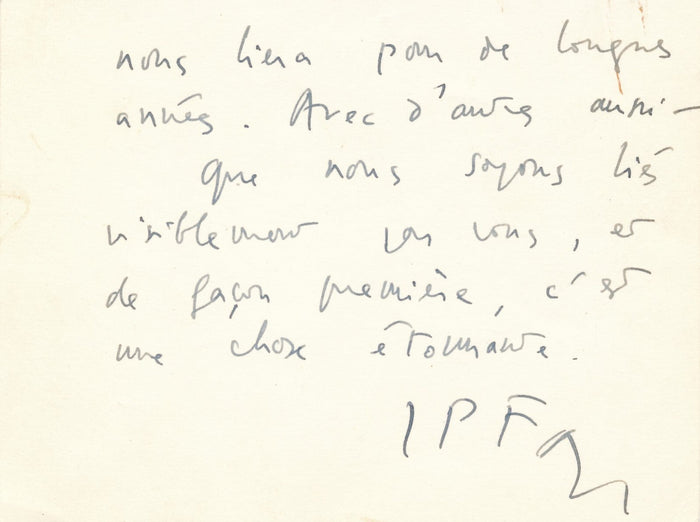 nous liera pour de longues
années. Avec d'autres aussi –
que nous soyons liés
visiblement par vous, et
de façon première, c'est
une chose étonnante.
JPF